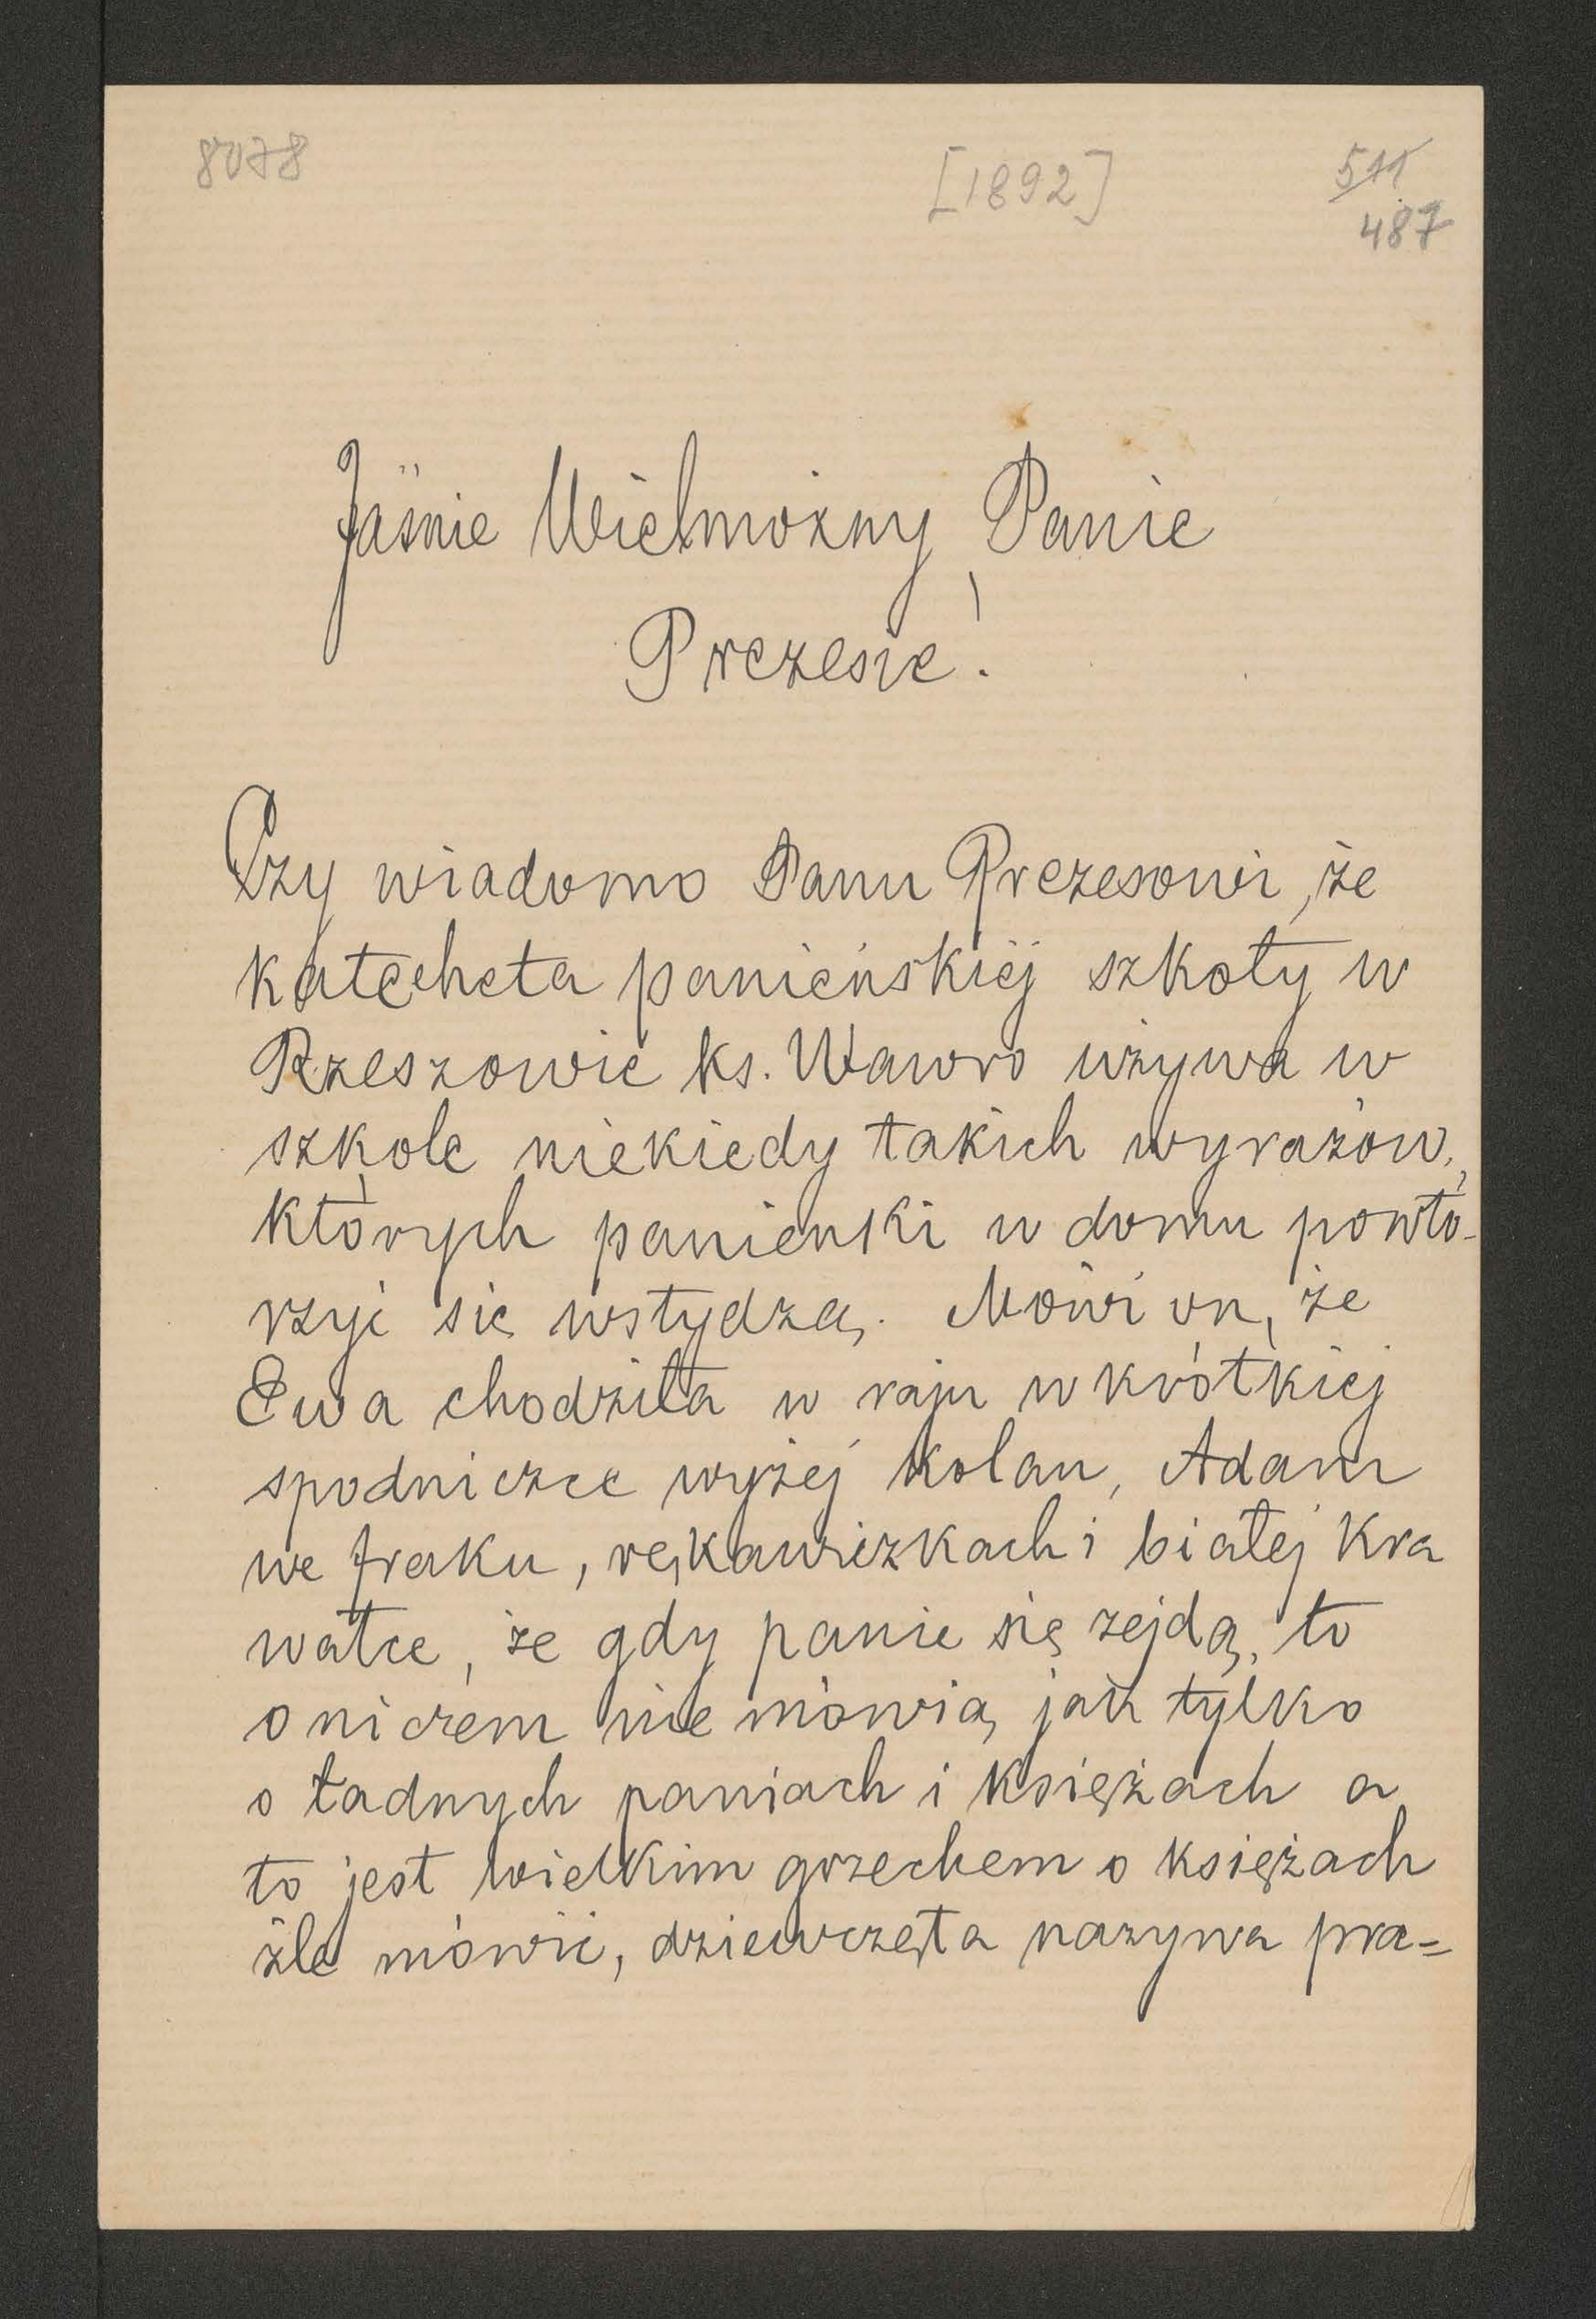 8078
[1892]
511
487
Jaśnie Wielmożny Panie
Prezesie!
Czy wiadomo Panu Prezesowi, że
katecheta panieńskiej szkoły w
Rzeszowie ks. Wawro używa w
szkole niekiedy takich wyrazów,
których panienki w domu powtó-
rzyć się wstydzą. Mówi on, że
Ewa chodziła w raju w krótkiej
spodniczce wyżej kolan, Adam
we fraku, rękawiczkach i białej kra
watce, że gdy panie się zejdą, to
o niczem nie mówią jak tylko
o ładnych paniach i księżach a
to jest wielkim grzechem o księżach
źle mówić, dziewczęta nazywa pra=